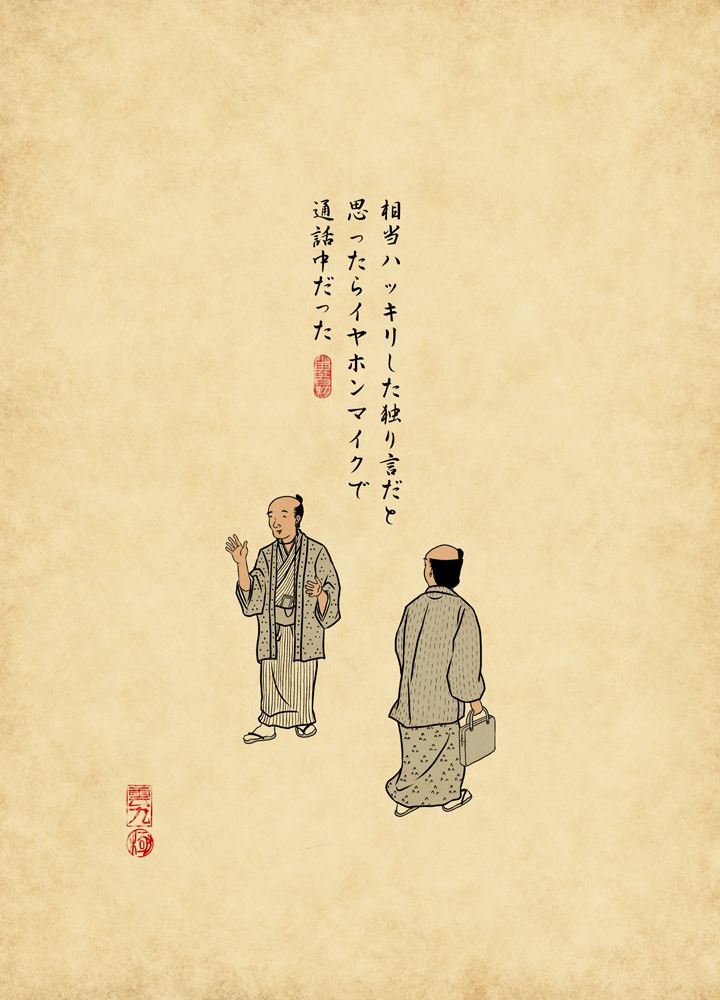 相当ハッキリした独り言だと
思ったらイヤホンマイクで
通話中だった